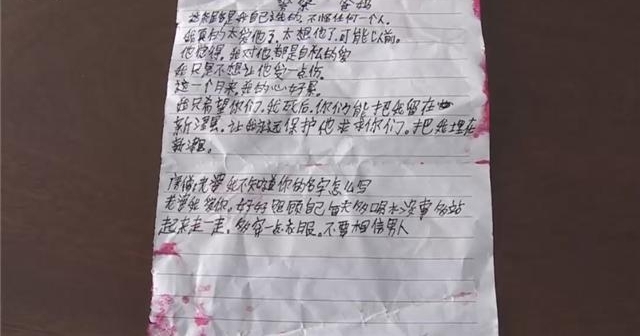 警察 爸妈
这条路是我自己选的，不怪任何一个人
我真的太爱他了，太想他了，可能以前
他觉得，我对他都是自私的爱
我只是不想让他受一点伤。
这一个月来，我的心好累。
我只希望你们，我死后，你们能把我留在
新港，让我永远保护他求求你们。把我埋在
老婆我不知道你的名字怎么写
老婆我爱你，好好照顾自己每天多喝水没事多站
起来走一走，多穿一点衣服。不要相信男人